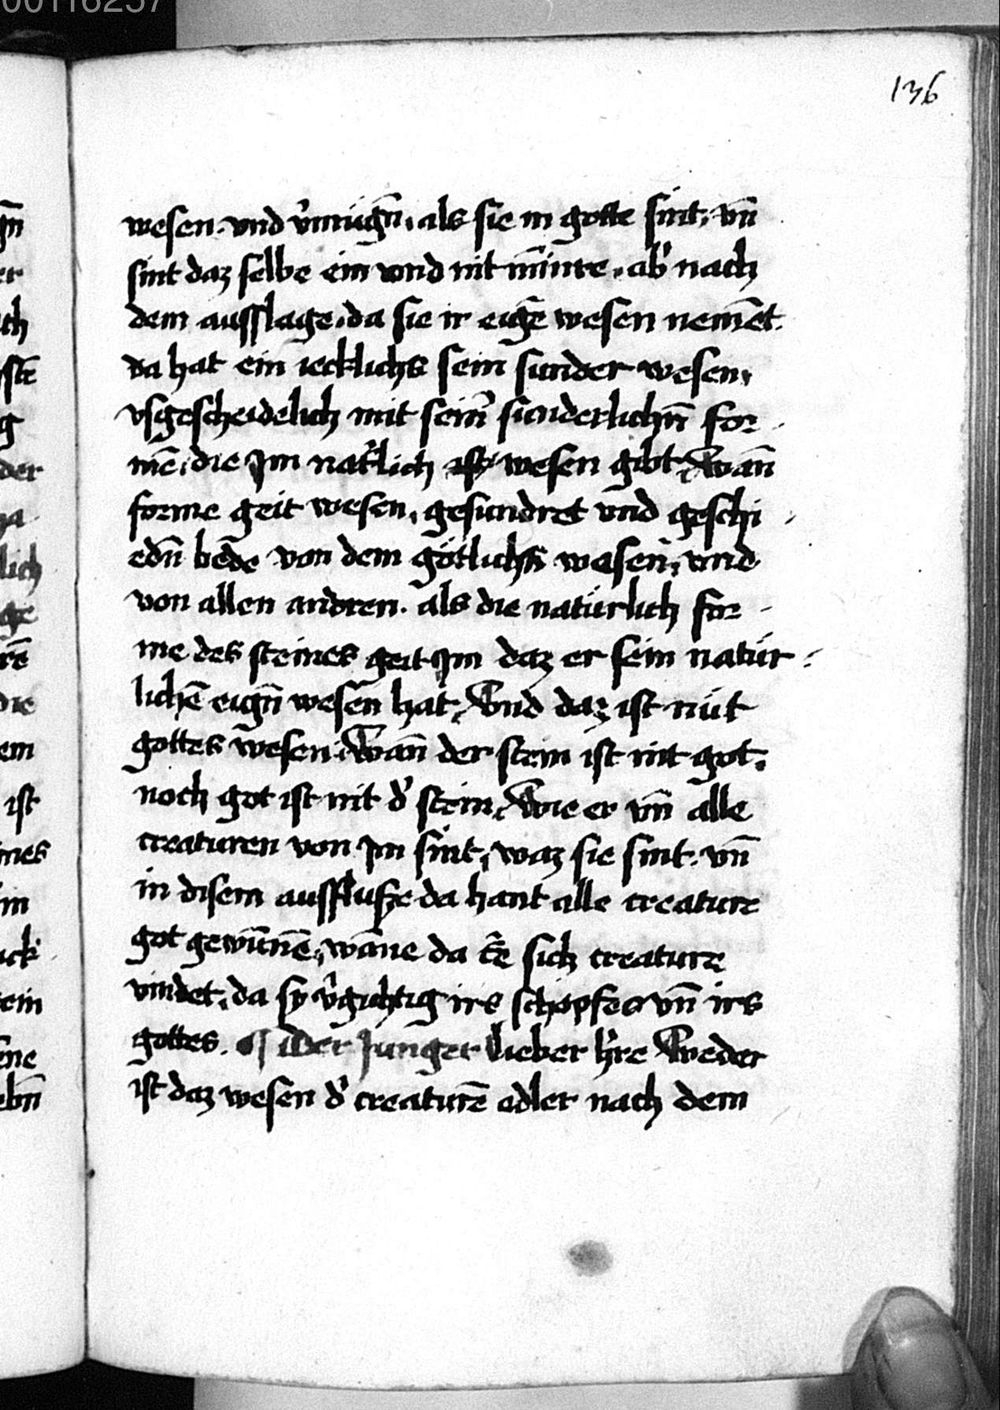 00116257
136
wesen. vnd v̾mugn̄, als sie in gotte sint, vn̄
sint daz selbe ein vnd nit mīnre, ab̾ nach
dem ausslage, da sie ir eigē wesen nemēt.
da hat ein iecklichs sein sunder wesen,
vsgescheidelich mit sein̾ sunderlichn̄ for
mē, die Im nat̾lich wesen gibt, wān
forme geit wesen, gesundret vnd geschi
edn̄ bēde von dem götlichn̄ wesen, vnd
von allen andren. als die natúrlich for
me des steines geit Im daz er sein natúr
lichē eign̄ wesen hat, Vnd daz ist nút
gottes wesen, Wān der stein ist nit got,
noch got ist nit d̾ stein, Wie er vn̄ alle
creaturen von Im sint, waz sie sint. vn̄
in disem ausfluße da hant alle creature
got gewūnē, wāne da sich creature
vindet, da sy v̾gichtig irs schöpfers vn̄ irs
gottes. ¶ Der Junger lieber h̾re Weder
ist daz wesen d̾ creaturē edler nach dem